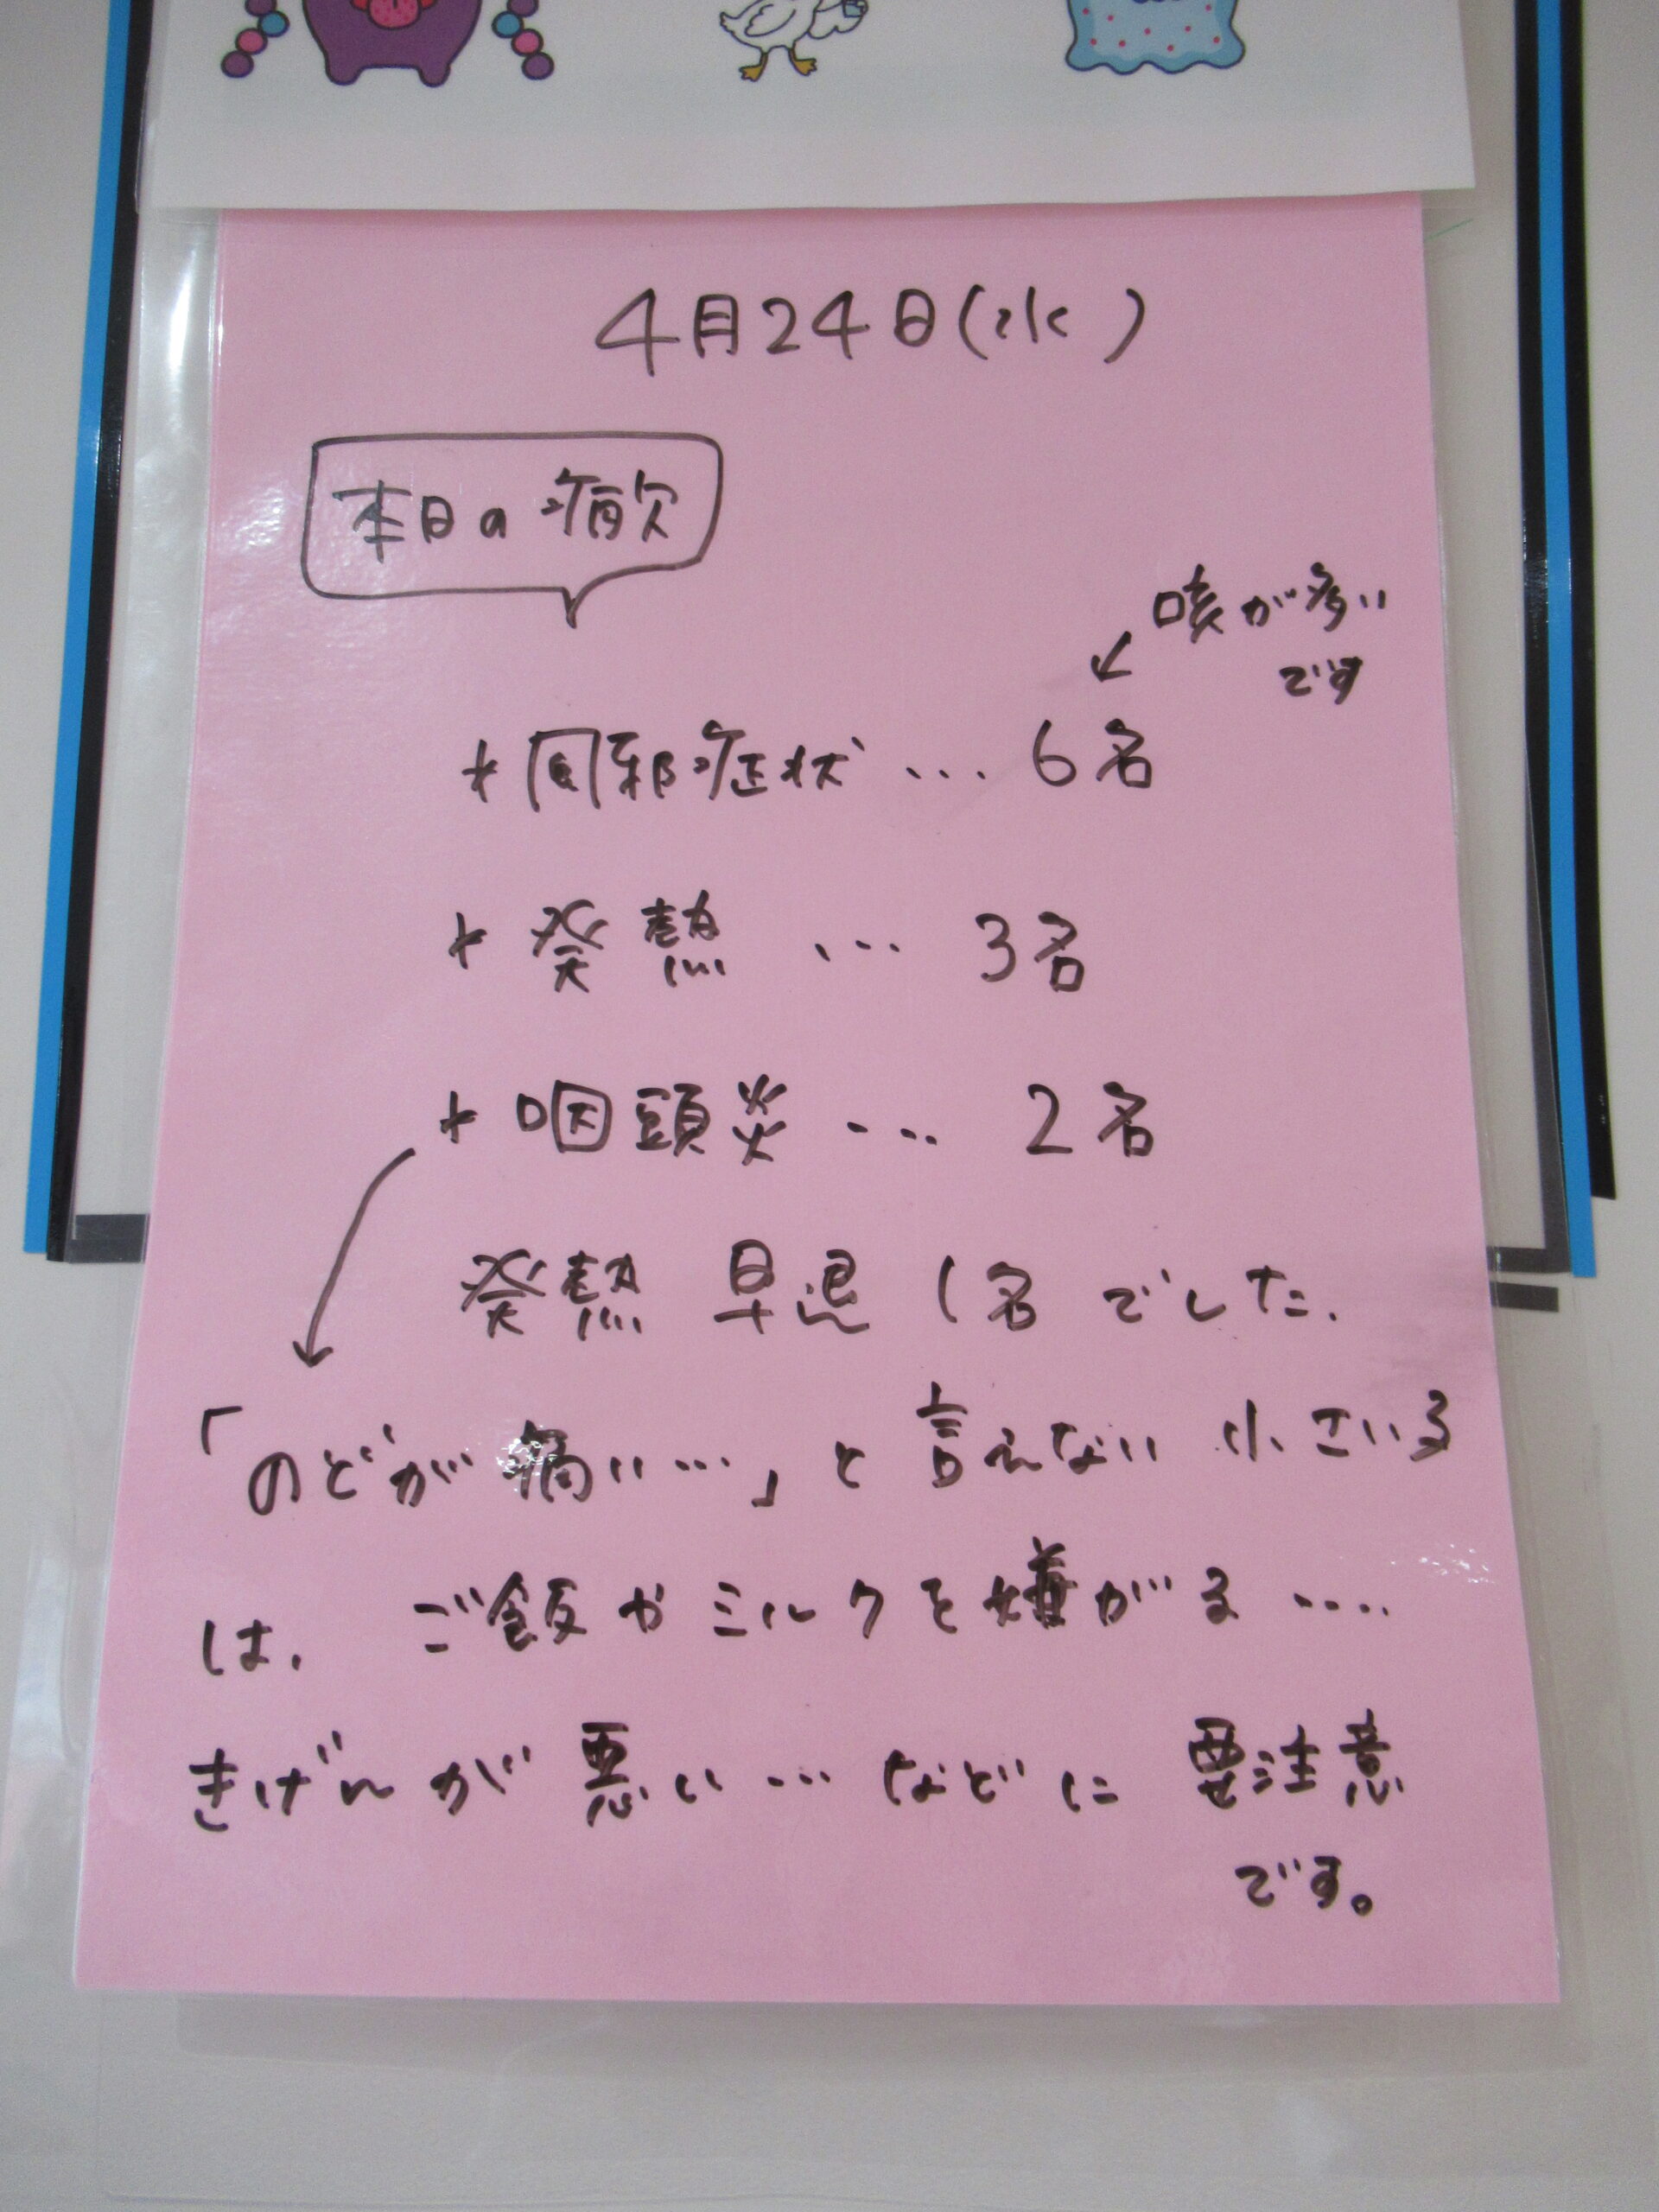 4月24日(水)
本日の病欠
咳が多い
です
* 風邪症状 … 6名
* 発熱 … 3名
* 咽頭炎 … 2名
発熱 早退 1名でした.
「のどが痛い…」と言えない小さい子
は、ご飯やミルクを嫌がる‥‥
きげんが悪い…などに要注意
です。